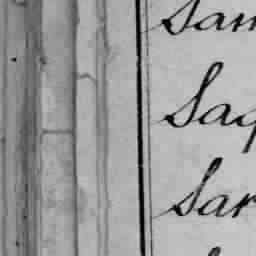 Sam
Sag
Sar